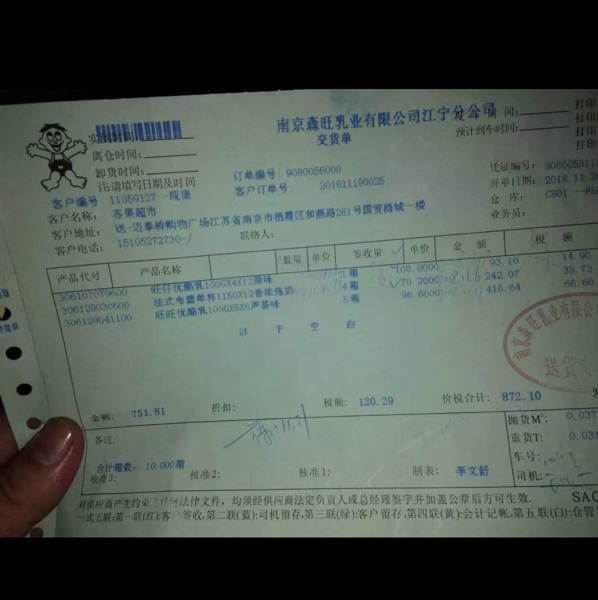 南京森旺乳业有限公司江宁分公司
交货单
离仓时间：
卸货时间：
注：请填写日期及时间
预计到车时间：
打印
打印
打印
打印
订单编号：9080056000
客户编号：11059127 一现渠
客户订单号：201811190025
凭证编号：808005311
客户名称：苏果超市
开单日期：2018.11.2
送一迈皋桥购物广场江苏省南京市栖霞区和燕路281号国贸商城一楼
仓 库：CS01
客户地址：
业务员：
客户电话：15105272730-/
联络人：
产品代号 产品名称 数量 单位 签收量 单价 金 额 税 额
306107079600 旺仔优酪乳100GX4X12原味 1箱 108.0000 93.10 14.90
306129030600 法式布蕾单杯118GX12香浓炼奶 4箱 70.2000 242.07 38.73
306129041100 旺旺优酪乳100GX8X6芦荟味 5箱 96.6600 416.64 66.66
以 下 空 白
南京森旺乳业有限公
送货
金额：751.81 折扣： 税额：120.29 价税合计：872.10
备注：
11.21
抛货M³：0.037
重货T：0.031
合计箱数：10.000箱
车号：
核准3： 核准2： 核准1： 制表：李文舒
司机：
对供应商产生约束之任何法律文件，均须经供应商法定负责人或总经理签字并加盖公章后方可生效。
SAC
一式五联：第一联(红)：客户签收，第二联(蓝)：司机留存，第三联(绿)：客户留存，第四联(黄)：会计记帐，第五联(白)：仓管